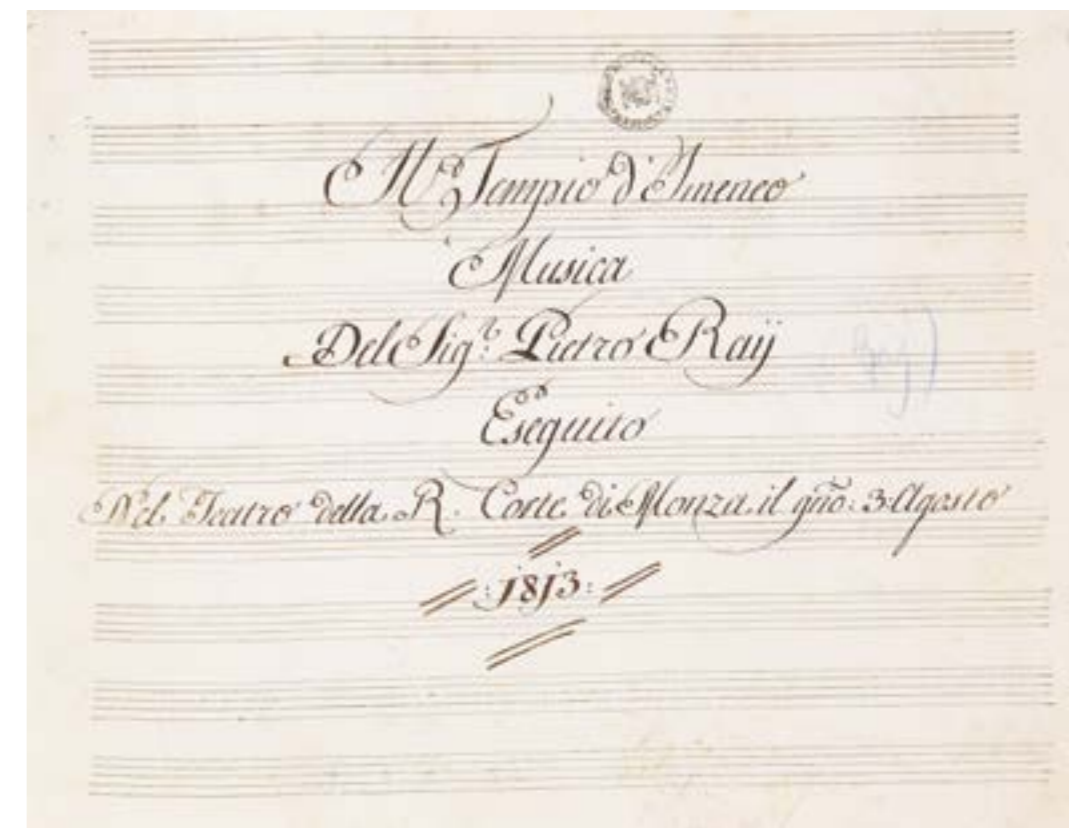 Il Tempio d'Imeneo
Musica
Del Sigr: Pietro Raÿ
Eseguito
Nel Teatro della R. Corte di Monza il gño: 3. Agosto
:1813: